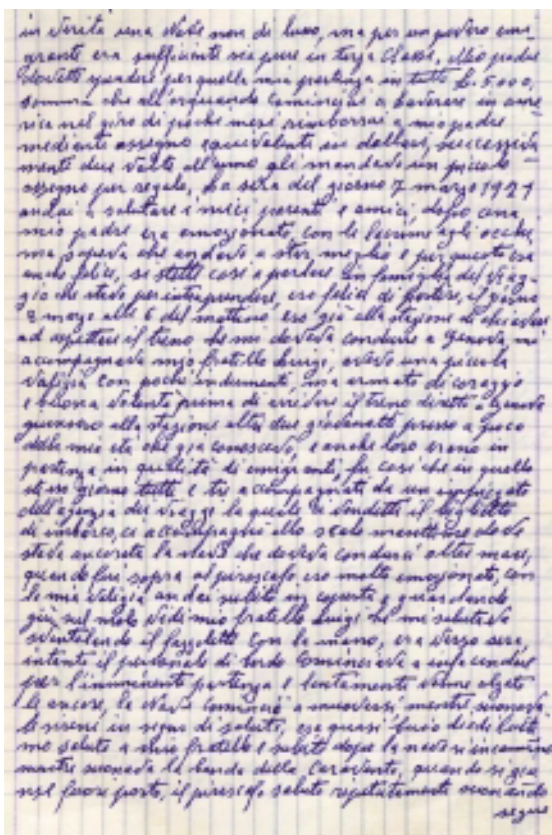 in verità una nave non di lusso, ma per un povero emi
grante era sufficiente sia pure in terza classe, mio padre
dovette spendere per quella mia partenza in tutto L. 5.000,
somma che all'orquando cominciai a lavorare in ame
rica nel giro di pochi mesi rimborsai a mio padre
mediante assegno equivalente in dollari, successiva
mente due volte all'anno gli mandavo un piccolo
assegno per regalo, La sera del giorno 7 marzo 1921
andai a salutare i miei parenti e amici, dopo cena
mio padre era emozionato, con le lacrime agli occhi,
ma sapeva che andavo a star meglio e per questo era
anche felice, si stette così a parlare in famiglia del viag
gio che stavo per intraprendere, ero felice di partire, il giorno
8 marzo alle 6 del mattino ero già alla stazione di
ad aspettare il treno che mi doveva condurre a Genova, mi
acompagnava mio fratello Luigi, avevo una piccola
valigia con pochi indumenti, ma armato di coraggio
e buona volontà prima di arrivare il treno diretto a Genova
giunsero alla stazione altri due giovanotti presso a poco
della mia età che già conoscevo, e anche loro erano in
partenza in qualità di emigranti, fu così che in quello
stesso giorno tutti e tre acompagnati da un impiegato
dell'agenzia dei viaggi la quale ci vendette il biglietto
di imbarco, ci acompagnò allo scalo marittimo dove
stava ancorata la nave che doveva condurci oltre mare,
quando fui sopra al piroscafo, ero molto emozionato, con
la mia valigia andai subito in coperta, e guardando
giù nel molo vidi mio fratello Luigi che mi salutava
sventolando il fazzoletto con la mano, era verso sera,
intanto il personale di bordo cominciava a
per l'imminente partenza e lentamente venne alzato
le ancore, la nave cominciò a muoversi mentre suonava
le sirene in segno di saluto, diedi
mo saluto a mio fratello e subito dopo la nave si incamminò
mentre suonava la banda della quando si giunse
nel fuori porto, il piroscafo salutò ripetutamente suonando
segue